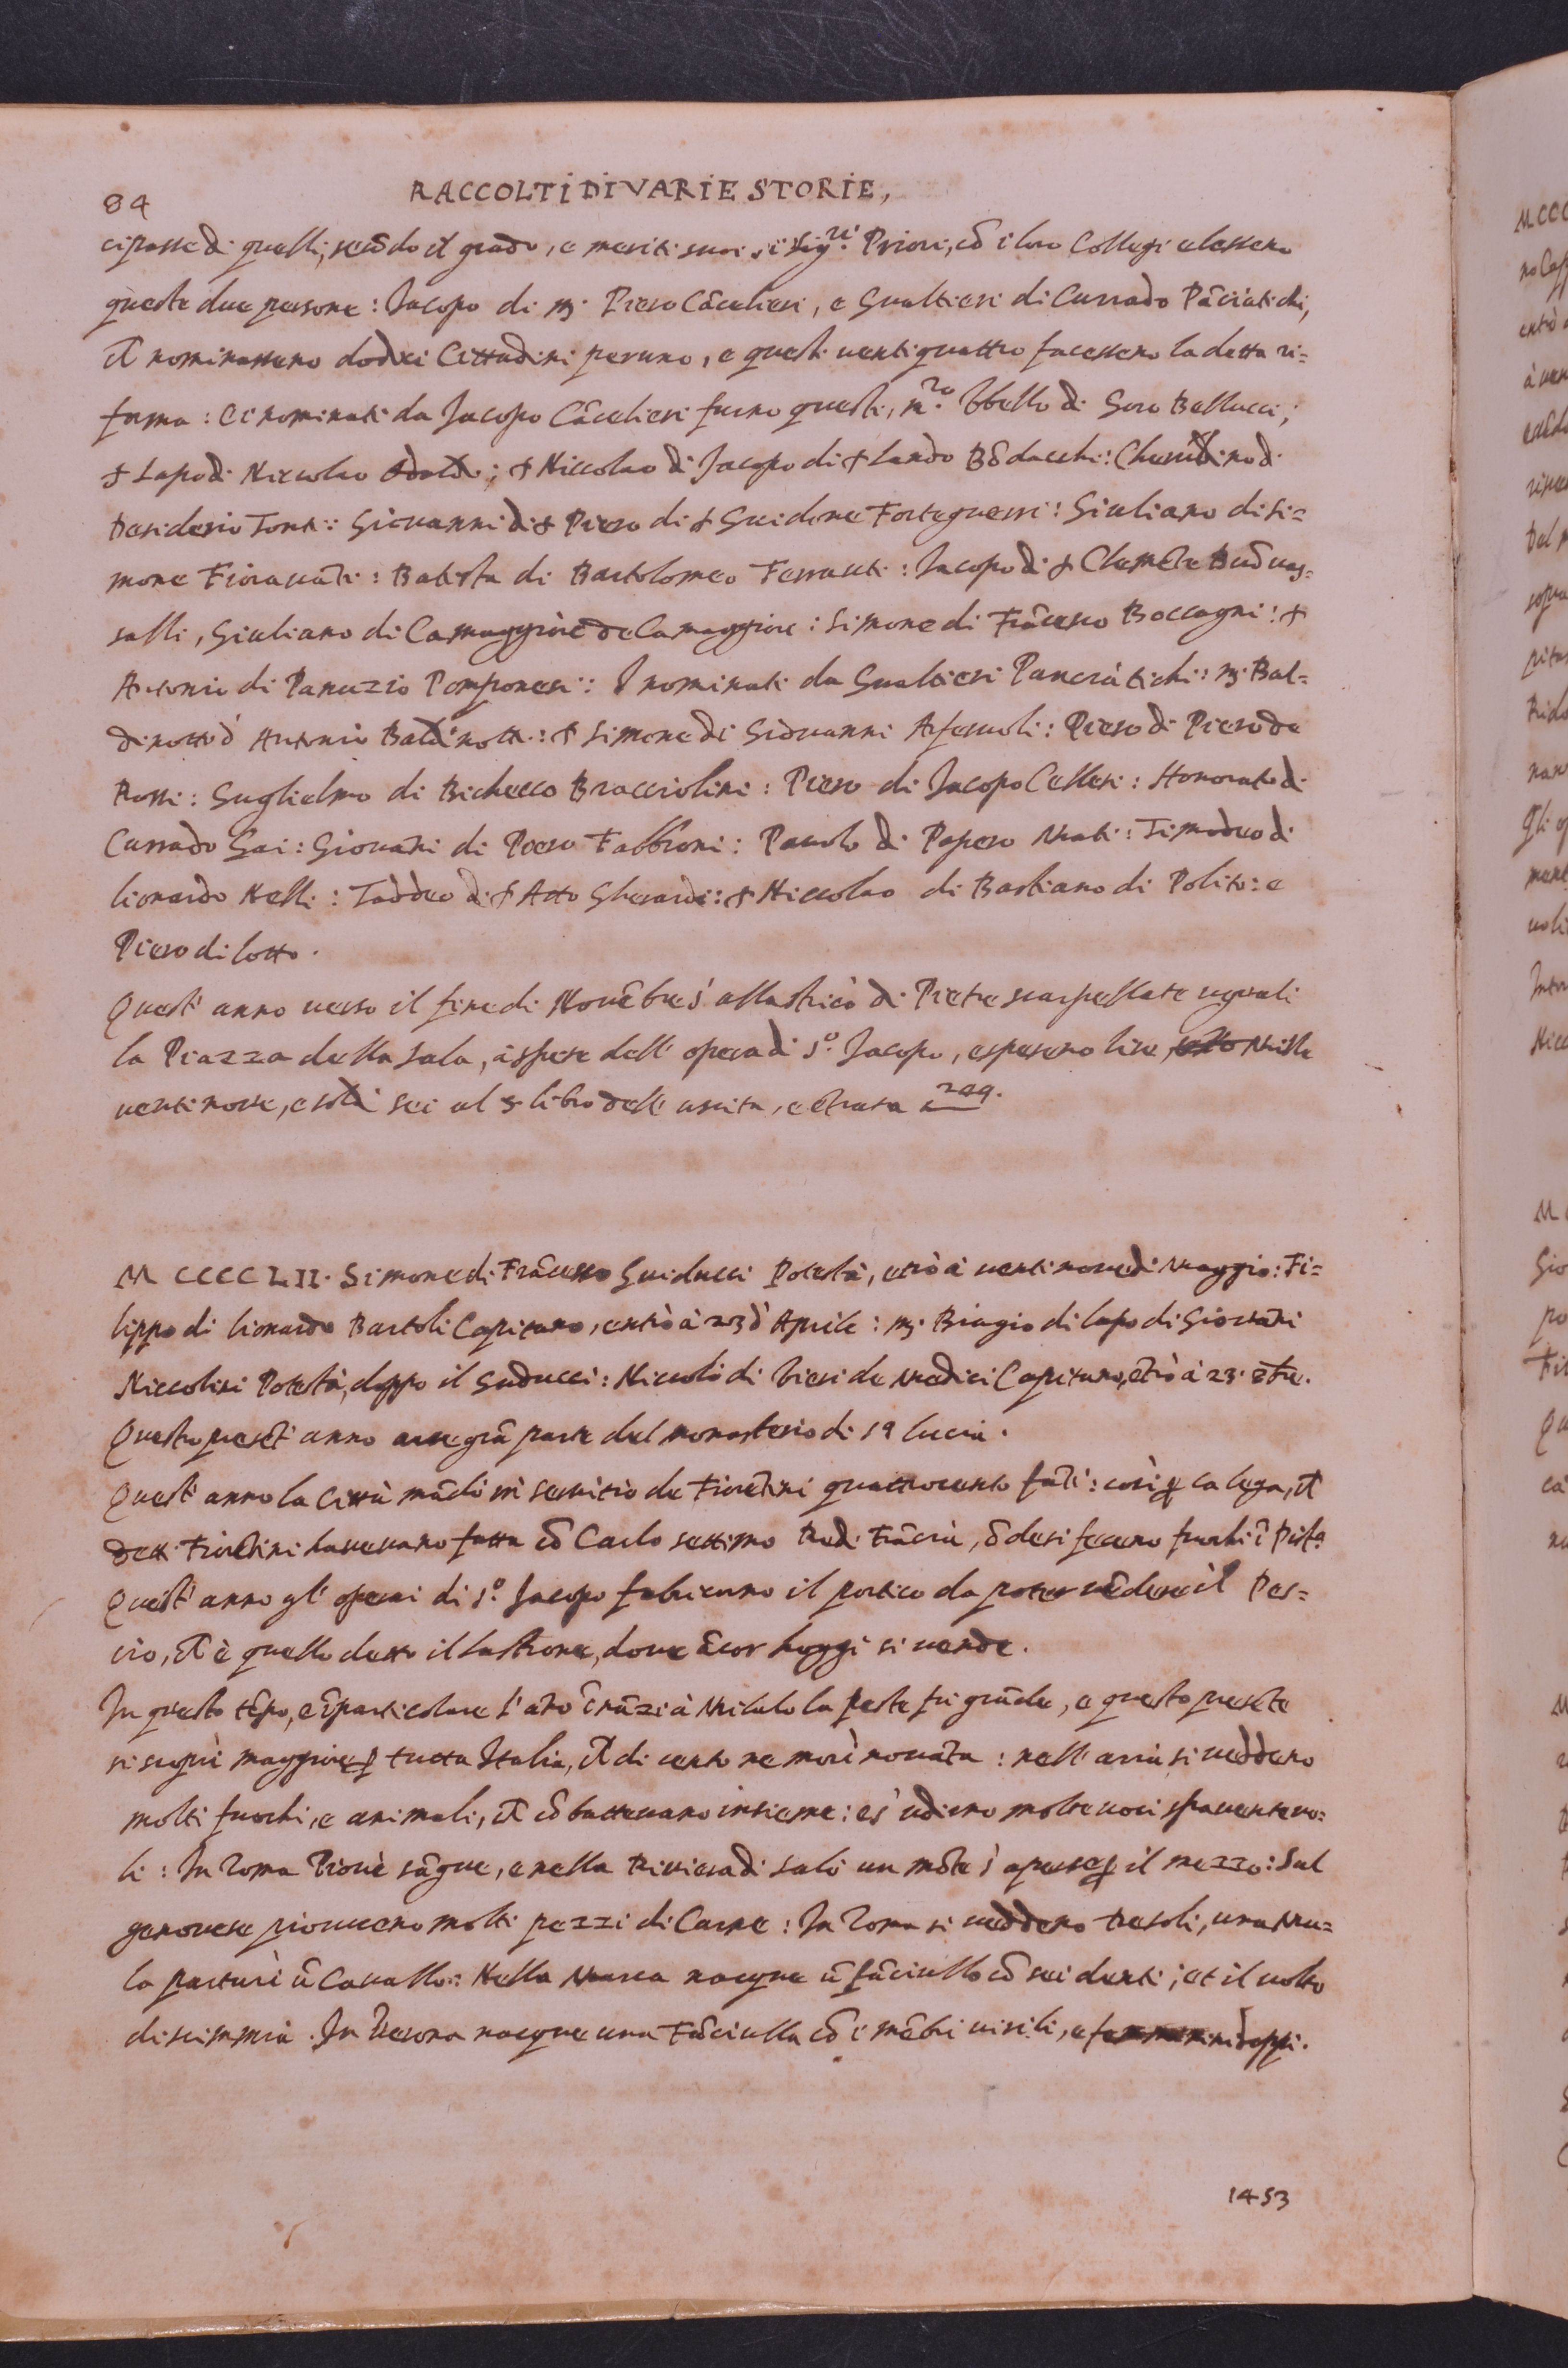 84
RACCOLTI DI VARIE STORIE,
cipasse di quelli, secōdo il grado, e meriti suoi, i Sig.ri Priori, cō i loro Collegi elessero
queste due persone: Jacopo di m. Piero Cācelieri, e Gualtieri di Currado Pāciatichi,
nominassero dodici Cittadini peruno, e questi uentiquattro facessero la detta ri=
forma: Ei nominati da Jacopo Cācelieri furno questi, m.ro Ibello di Soro Bellucci;
Lapo di Niccolao; Niccolao di Jacopo di Lando Bōdacchi: Cherubino di
Desiderio Tonti: Giovanni di Piero di Guidone Forteguerri: Giuliano di Si=
mone Fiorauāti: Batista di Bartolomeo Ferranti: Jacopo di Clemēte Buōuas=
salli, Giuliano di Camaggiore de Camaggiore: Simone di Frācesco Boccagni:
Antonio di Panuzio Pomponesi: I nominati da Gualtieri Panciatichi: m. Bal=
dinotto d' Antonio Baldinotti: Simone di Giouanni Aferuoli: Piero di Piero de
Rossi: Guglielmo di Bichecco Bracciolini: Piero di Jacopo Cellesi: Honorato di
Currado Gai: Giouāni di Piero Fabbroni: Pauolo di Papero Mati: Timodeo di
lionardo Nelli: Taddeo di Atto Gherardi: Niccolao di Bastiano di Polito: e
Piero di lotto.
Quest' anno uerso il fine di Nouēbre s' allastricò di Pietre scarpellate uguali
la Piazza della Sala, à spese dell' opera di S.º Jacopo, e spesero lire, Mille
uentinoue, e soldi sei al libro dell' uscita, e ētrata 249.
M CCCC LII. Simone di Frācesco Guiducci Potestà, ētrò à uentinoue di Maggio: Fi=
lippo di lionardo Bartoli Capitano, entrò à 23 d' Aprile: m. Biagio di lapo di Giouāni
Niccolini Potestà, doppo il Guducci: Niccolò di Vieri de Medici Capitano, ētrò à 23.
Questo presēt' anno arse grā parte del monasterio di sª lucia.
Quest' anno la Città mādò in seruitio de Fiorētini quattrocento fāti: così la lega,
detti Fiorētini haueuano fatta cō Carlo settimo Re di Frācia, ōde si fecero fuochi ī Pist.ª
Quest' anno gl' operai di S.º Jacopo fabricorno il portico da poter uēdere il Pes=
cio, è quello detto il lastrone, doue ācor hoggi si uende.
In questo tēpo, e īparticolare l' ano īnāzi à Milalo la peste fu grāde, e questo presēte
si seguì maggiore tutta Italia, di cento ne morì nouāta: nell' aria si ueddero
molti fuochi, e animali, cōbatteuano insieme: e s' udirno molte uoci spauenteuo=
li: In Roma Piouè sāgue, e nella Riuiera di Salò un mōte s' aperse il mezzo: Sul
genouese piouuero molti pezzi di Carne: In Roma si ueddero tre soli, una Mu=
la parturì ū Cauallo: Nella Marca nacque ū fāciullo cō sei denti; et il uolto
di scimmia. In Verona nacque una Fāciulla cō i mēbri uirili, e femminini doppi.
1453